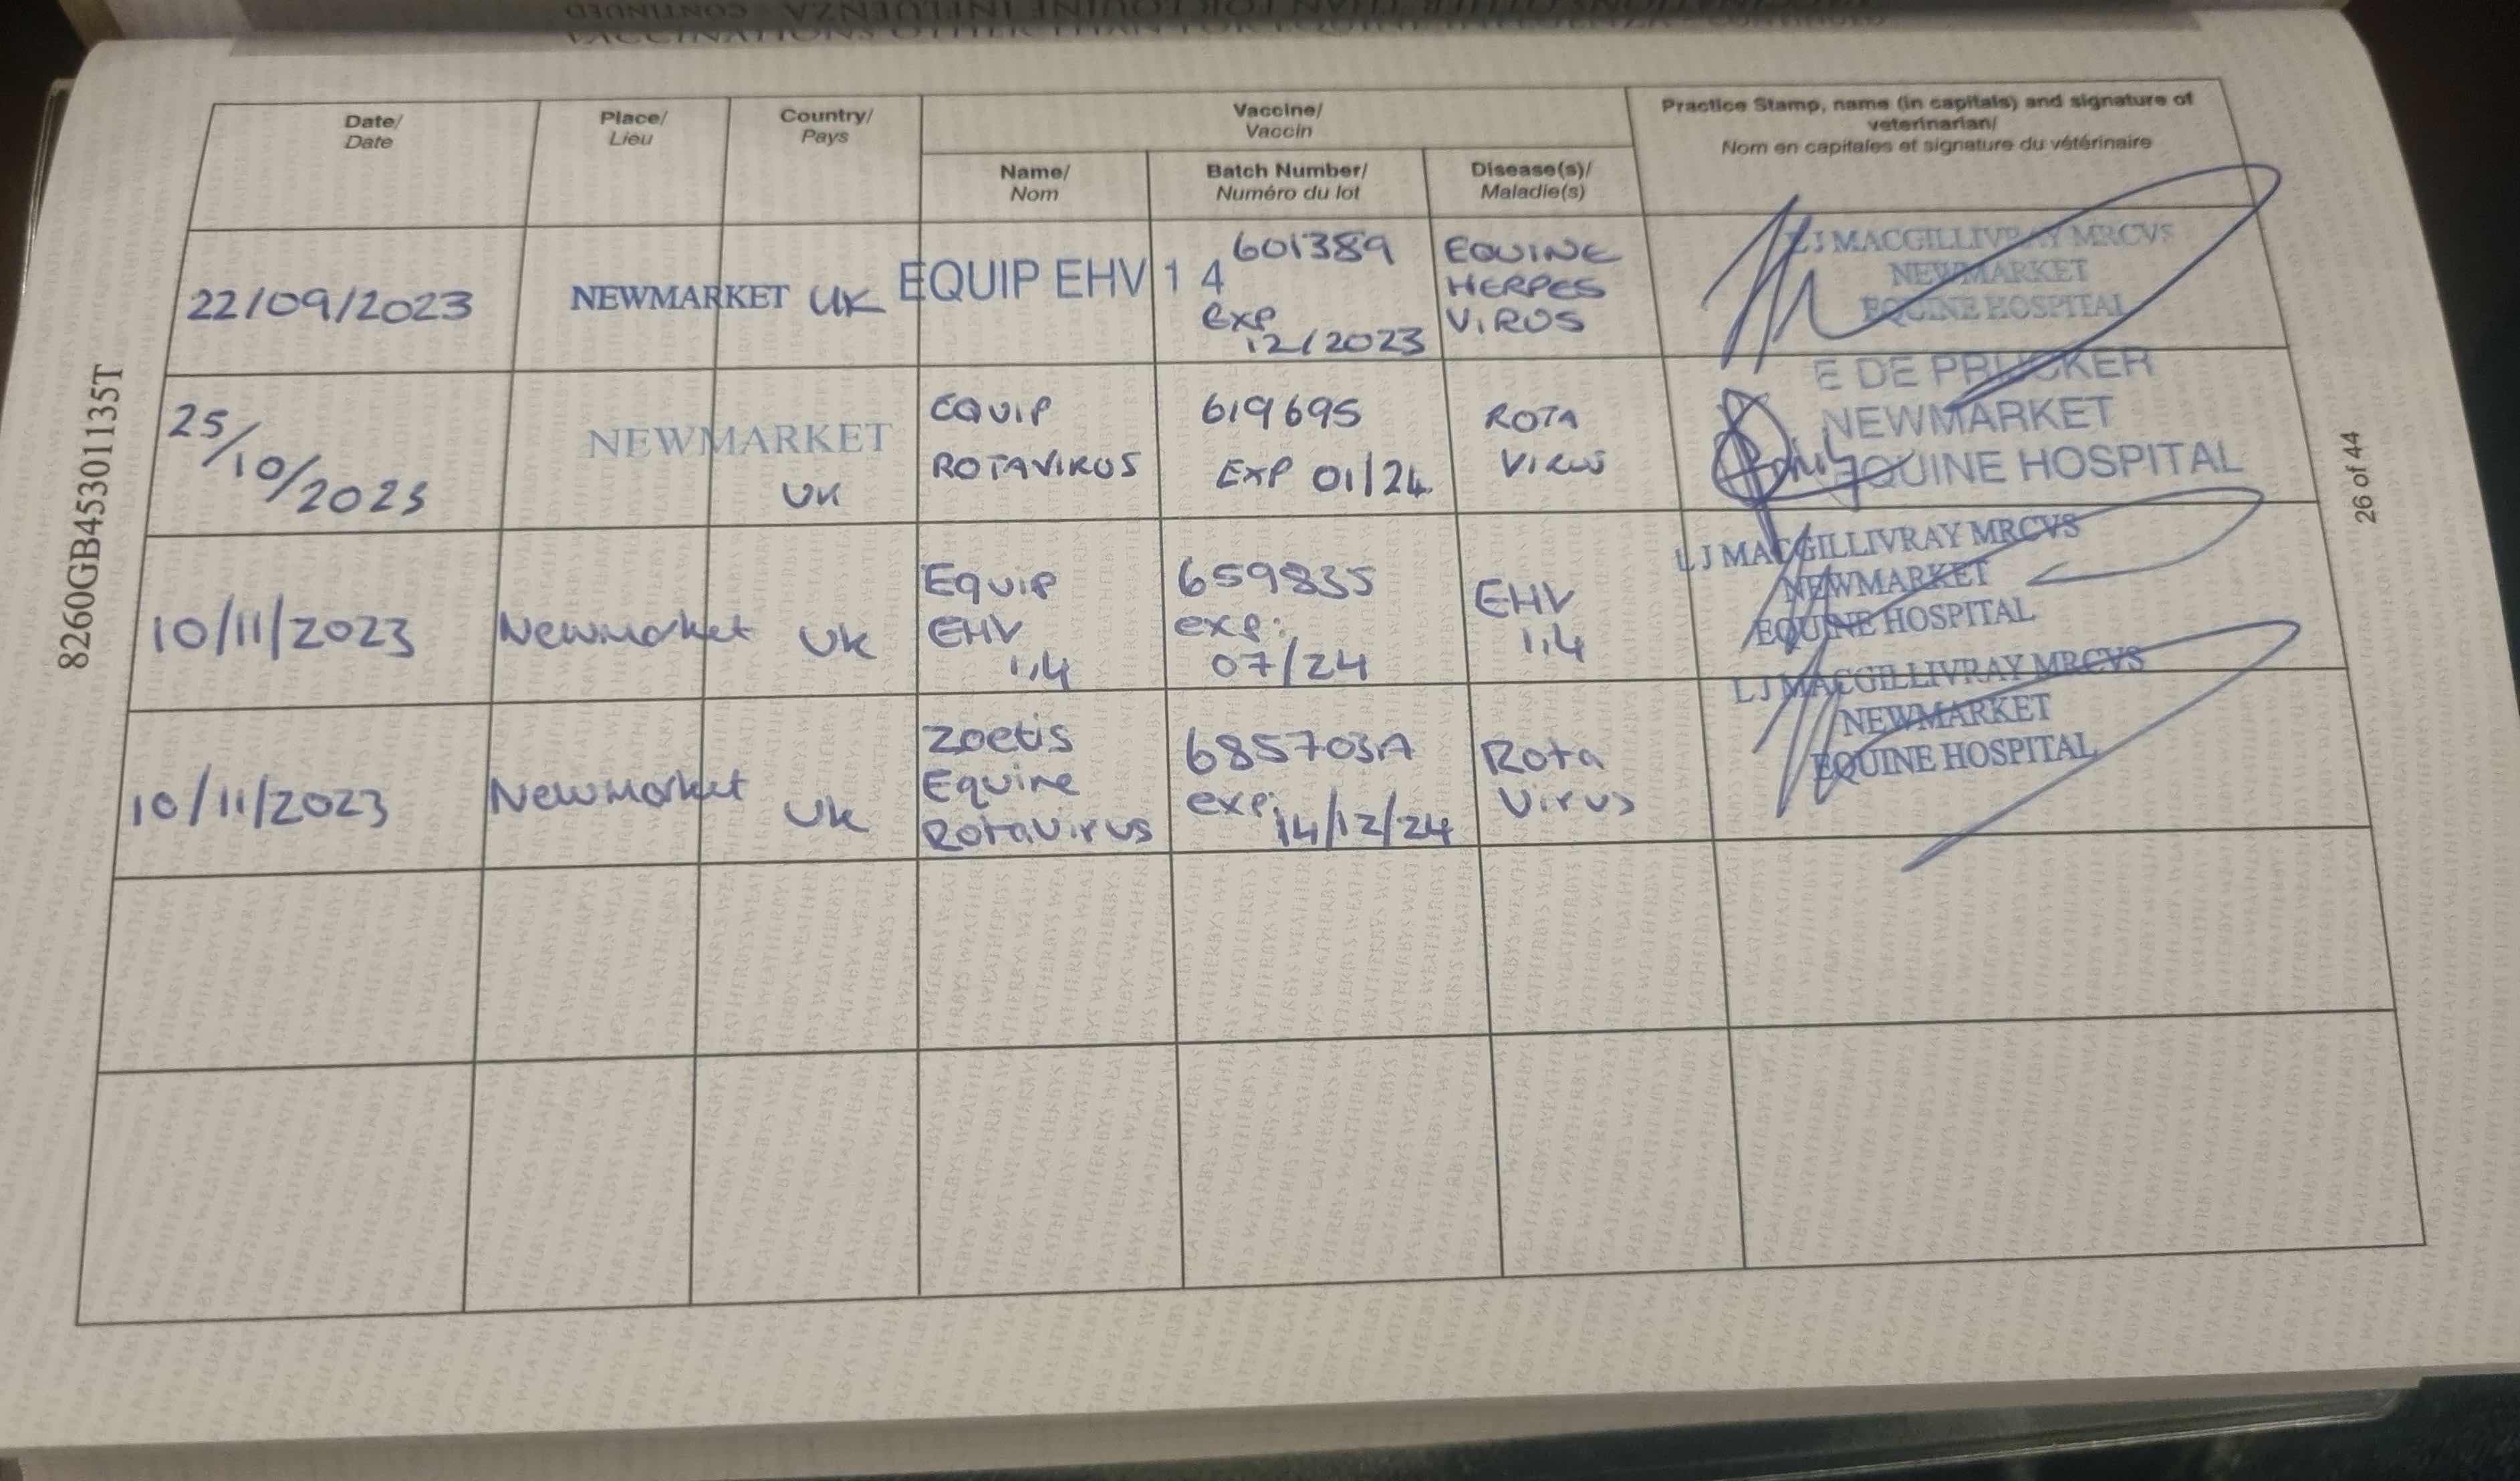 VACCINATIONS OTHER THAN FOR EQUINE INFLUENZA - CONTINUED
Date/
Date
Place/
Lieu
Country/
Pays
Vaccine/
Vaccin
Name/
Nom
Batch Number/
Numéro du lot
Disease(s)/
Maladie(s)
Practice Stamp, name (in capitals) and signature of
veterinarian/
Nom en capitales et signature du vétérinaire
22/09/2023
NEWMARKET
UK
EQUIP EHV 1 4
601389
exp
12/2023
EQUINE
HERPES
VIRUS
L J MACGILLIVRAY MRCVS
NEWMARKET
EQUINE HOSPITAL
25/10/2023
NEWMARKET
UK
EQUIP
ROTAVIRUS
619695
EXP 01/24
ROTA
VIRUS
E DE PRIJCKER
NEWMARKET
EQUINE HOSPITAL
10/11/2023
Newmarket
UK
Equip
EHV
1,4
659835
exp:
07/24
EHV
1,4
L J MACGILLIVRAY MRCVS
NEWMARKET
EQUINE HOSPITAL
10/11/2023
Newmarket
UK
Zoetis
Equine
Rotavirus
685703A
exp:
14/12/24
Rota
Virus
L J MACGILLIVRAY MRCVS
NEWMARKET
EQUINE HOSPITAL
8260GB45301135T
26 of 44